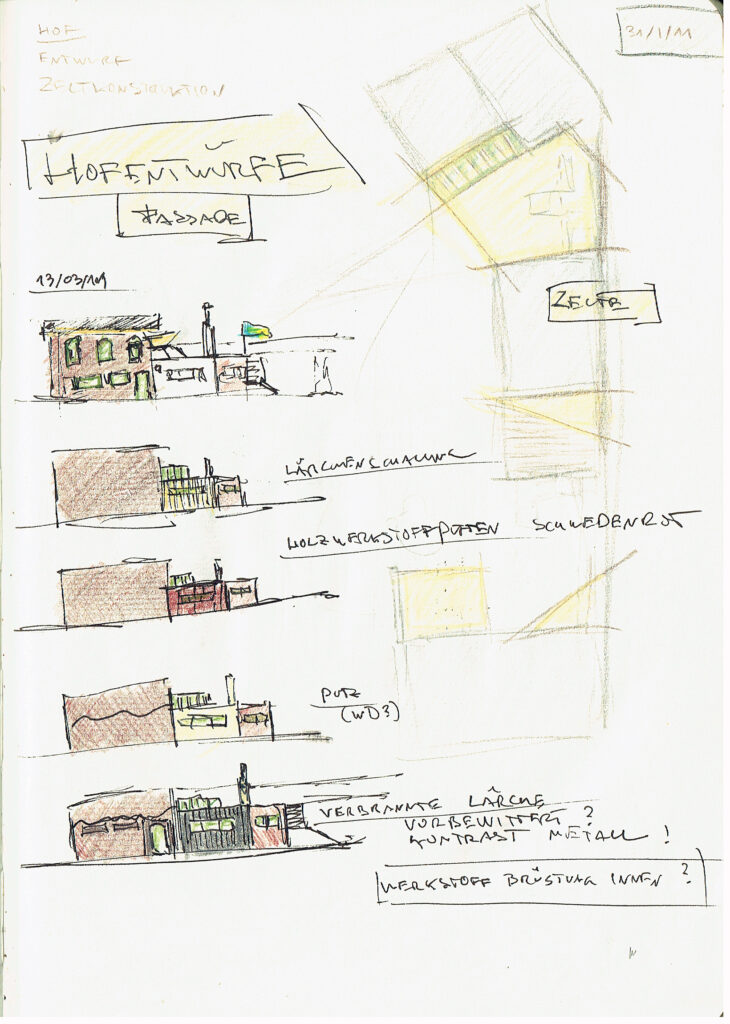 HOF
ENTWURF
ZELTKONSTRUKTION
31/1/11
HOFENTWÜRFE
FASSADE
13/03/11
ZELTE
LÄRCHENSCHALUNG
HOLZWERKSTOFFPLATTEN SCHWEDENROT
PUTZ
VERBRANNTE LÄRCHE
VORBEWITTERT?
KONTRAST METALL !
WERKSTOFF BRÜSTUNG INNEN ?